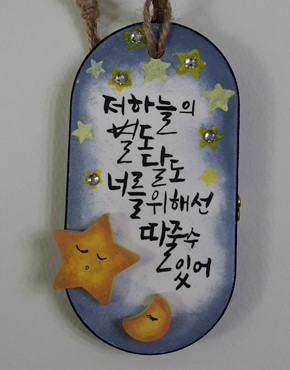 저하늘의
별도
달도
너를위해선
따줄수
있어